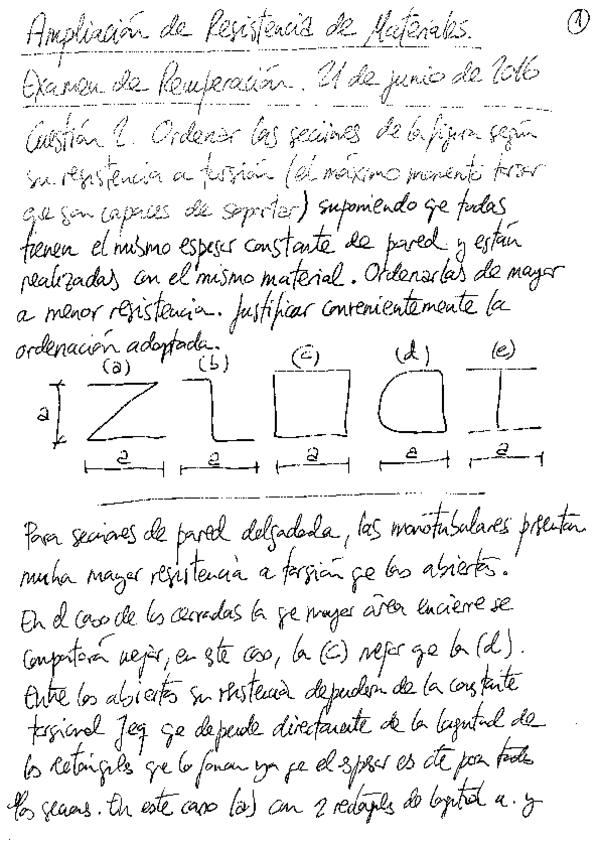 1
Ampliación de Resistencia de Materiales.
Examen de Recuperación. 21 de junio de 2016
Cuestión 2. Ordenar las secciones de la figura según
su resistencia a torsión (el máximo momento torsor
que son capaces de soportar) suponiendo qe todas
tienen el mismo espesor constante de pared y están
realizadas con el mismo material. Ordenarlas de mayor
a menor resistencia. Justificar convenientemente la
ordenación adoptada.
(a) (b) (c) (d) (e)
a
a a a a a
Para secciones de pared delgada, las monotubulares presentan
mucha mayor resistencia a torsión qe las abiertas.
En el caso de las cerradas la qe mayor área encierre se
comportará mejor, en este caso, la (c) mejor qe la (d).
Entre las abiertas su resistencia dependerá de la constante
torsional Jeq qe depende directamente de la longitud de
los rectángulos que la forman ya qe el espesor es cte para todas
las secciones. En este caso (a) con 2 rectángulos de longitud a. y